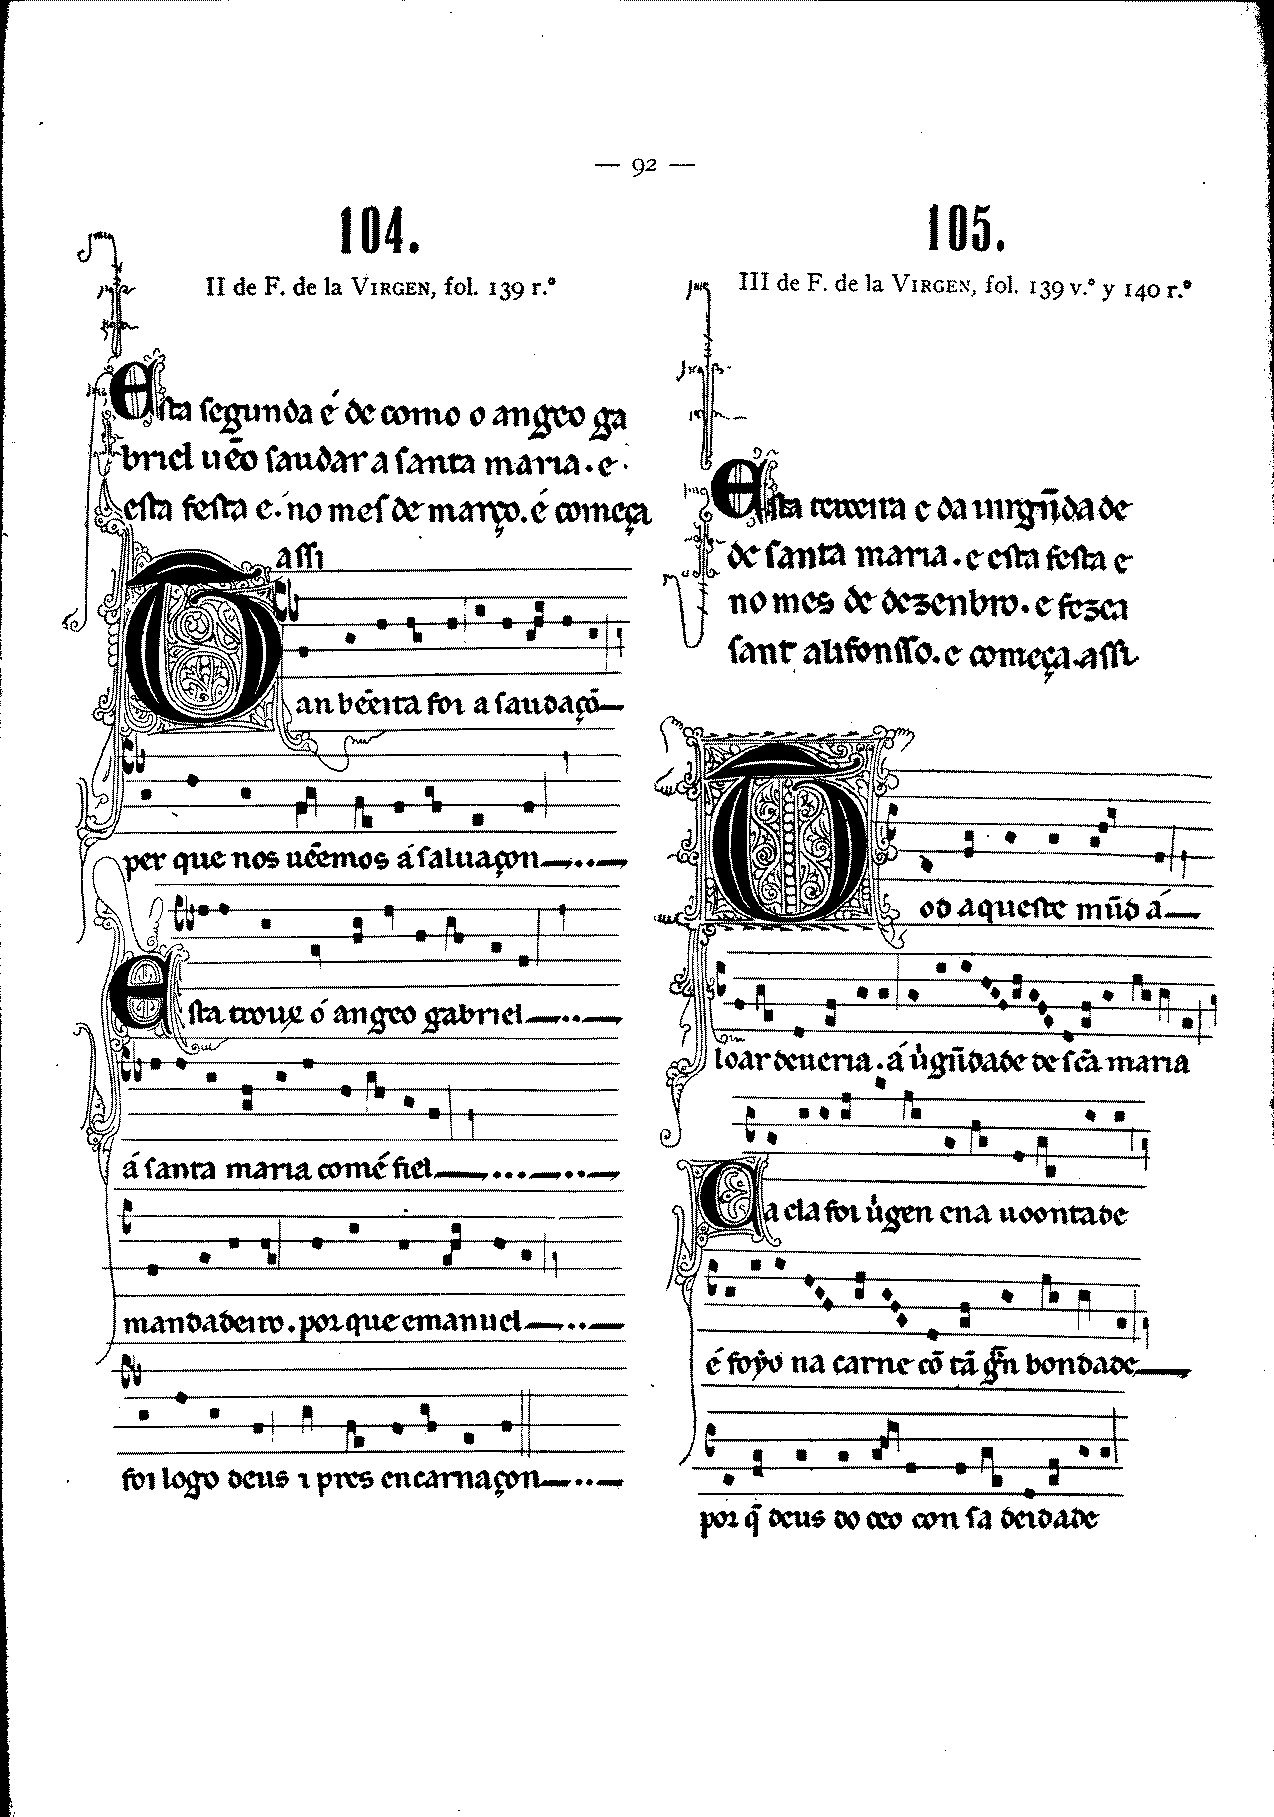 — 92 —
104.
II de F. de la VIRGEN, fol. 139 r.º
Esta segunda é de como o angeo ga
briel uẽo saudar a santa maria . e .
esta festa e . no mes de março . é começa
assi
Tan bẽeita foi a saudaçõ
per que nos uẽemos á saluaçon
Esta trouxe ó angeo gabriel
á santa maria comé fiel
mandadeiro . por que emanuel
foi logo deus i pres encarnaçon
105.
III de F. de la VIRGEN, fol. 139 v.º y 140 r.º
Esta terceira e da uirgñdade
de santa maria . e esta festa e
no mes de dezenbro . e fezea
sant alifonsso . e começa . assi
Tod aqueste mũd á
loar deueria . á uͥgñdade de sc̃a maria
Ca ela foi uͥgen ena uoontade
é foyo na carne cõ tã gn̄ bondade
por q̃ deus do ceo con sa deidade